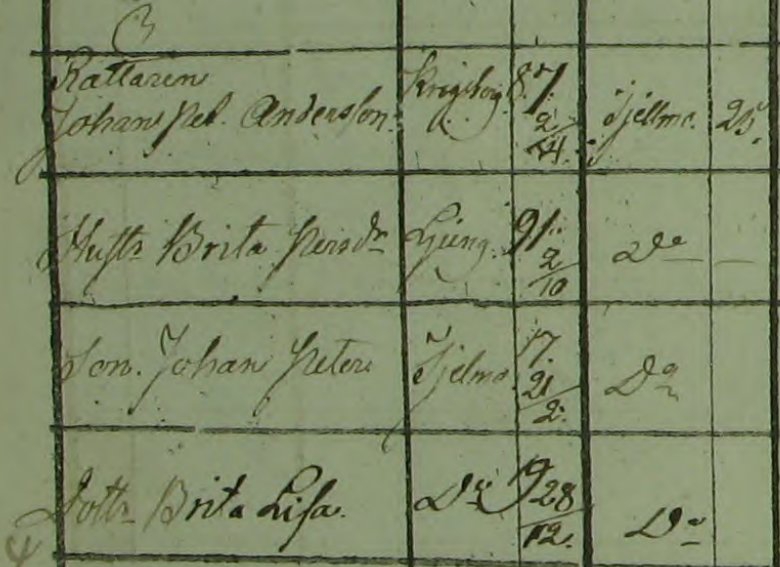 Rättaren
Johan Pet. Andersson. Krigsborg 87. 2/24. Tjellmo. 25.
Hustr Brita Persdr Ljung. 91. 2/10 Do
Son. Johan Peter Tjelmo. 17. 21/2. Do
Dottr Brita Lisa. Do 19 28/12. Do